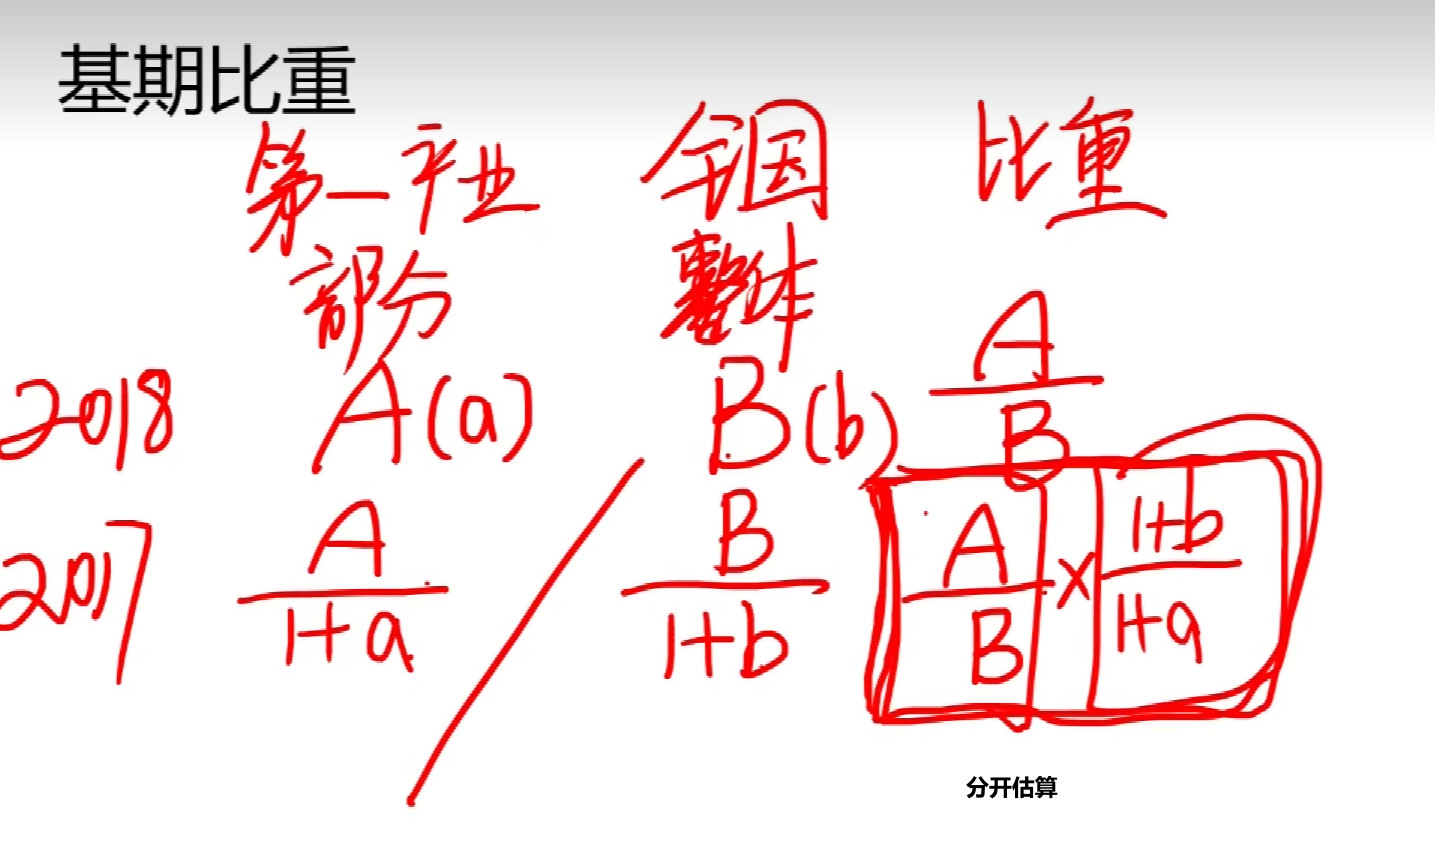 基期比重
第一产业 全国 比重
部分 整体
2018 A(a) B(b) A/B
2017 A/1+a / B/1+b A/B × 1+b/1+a
分开估算